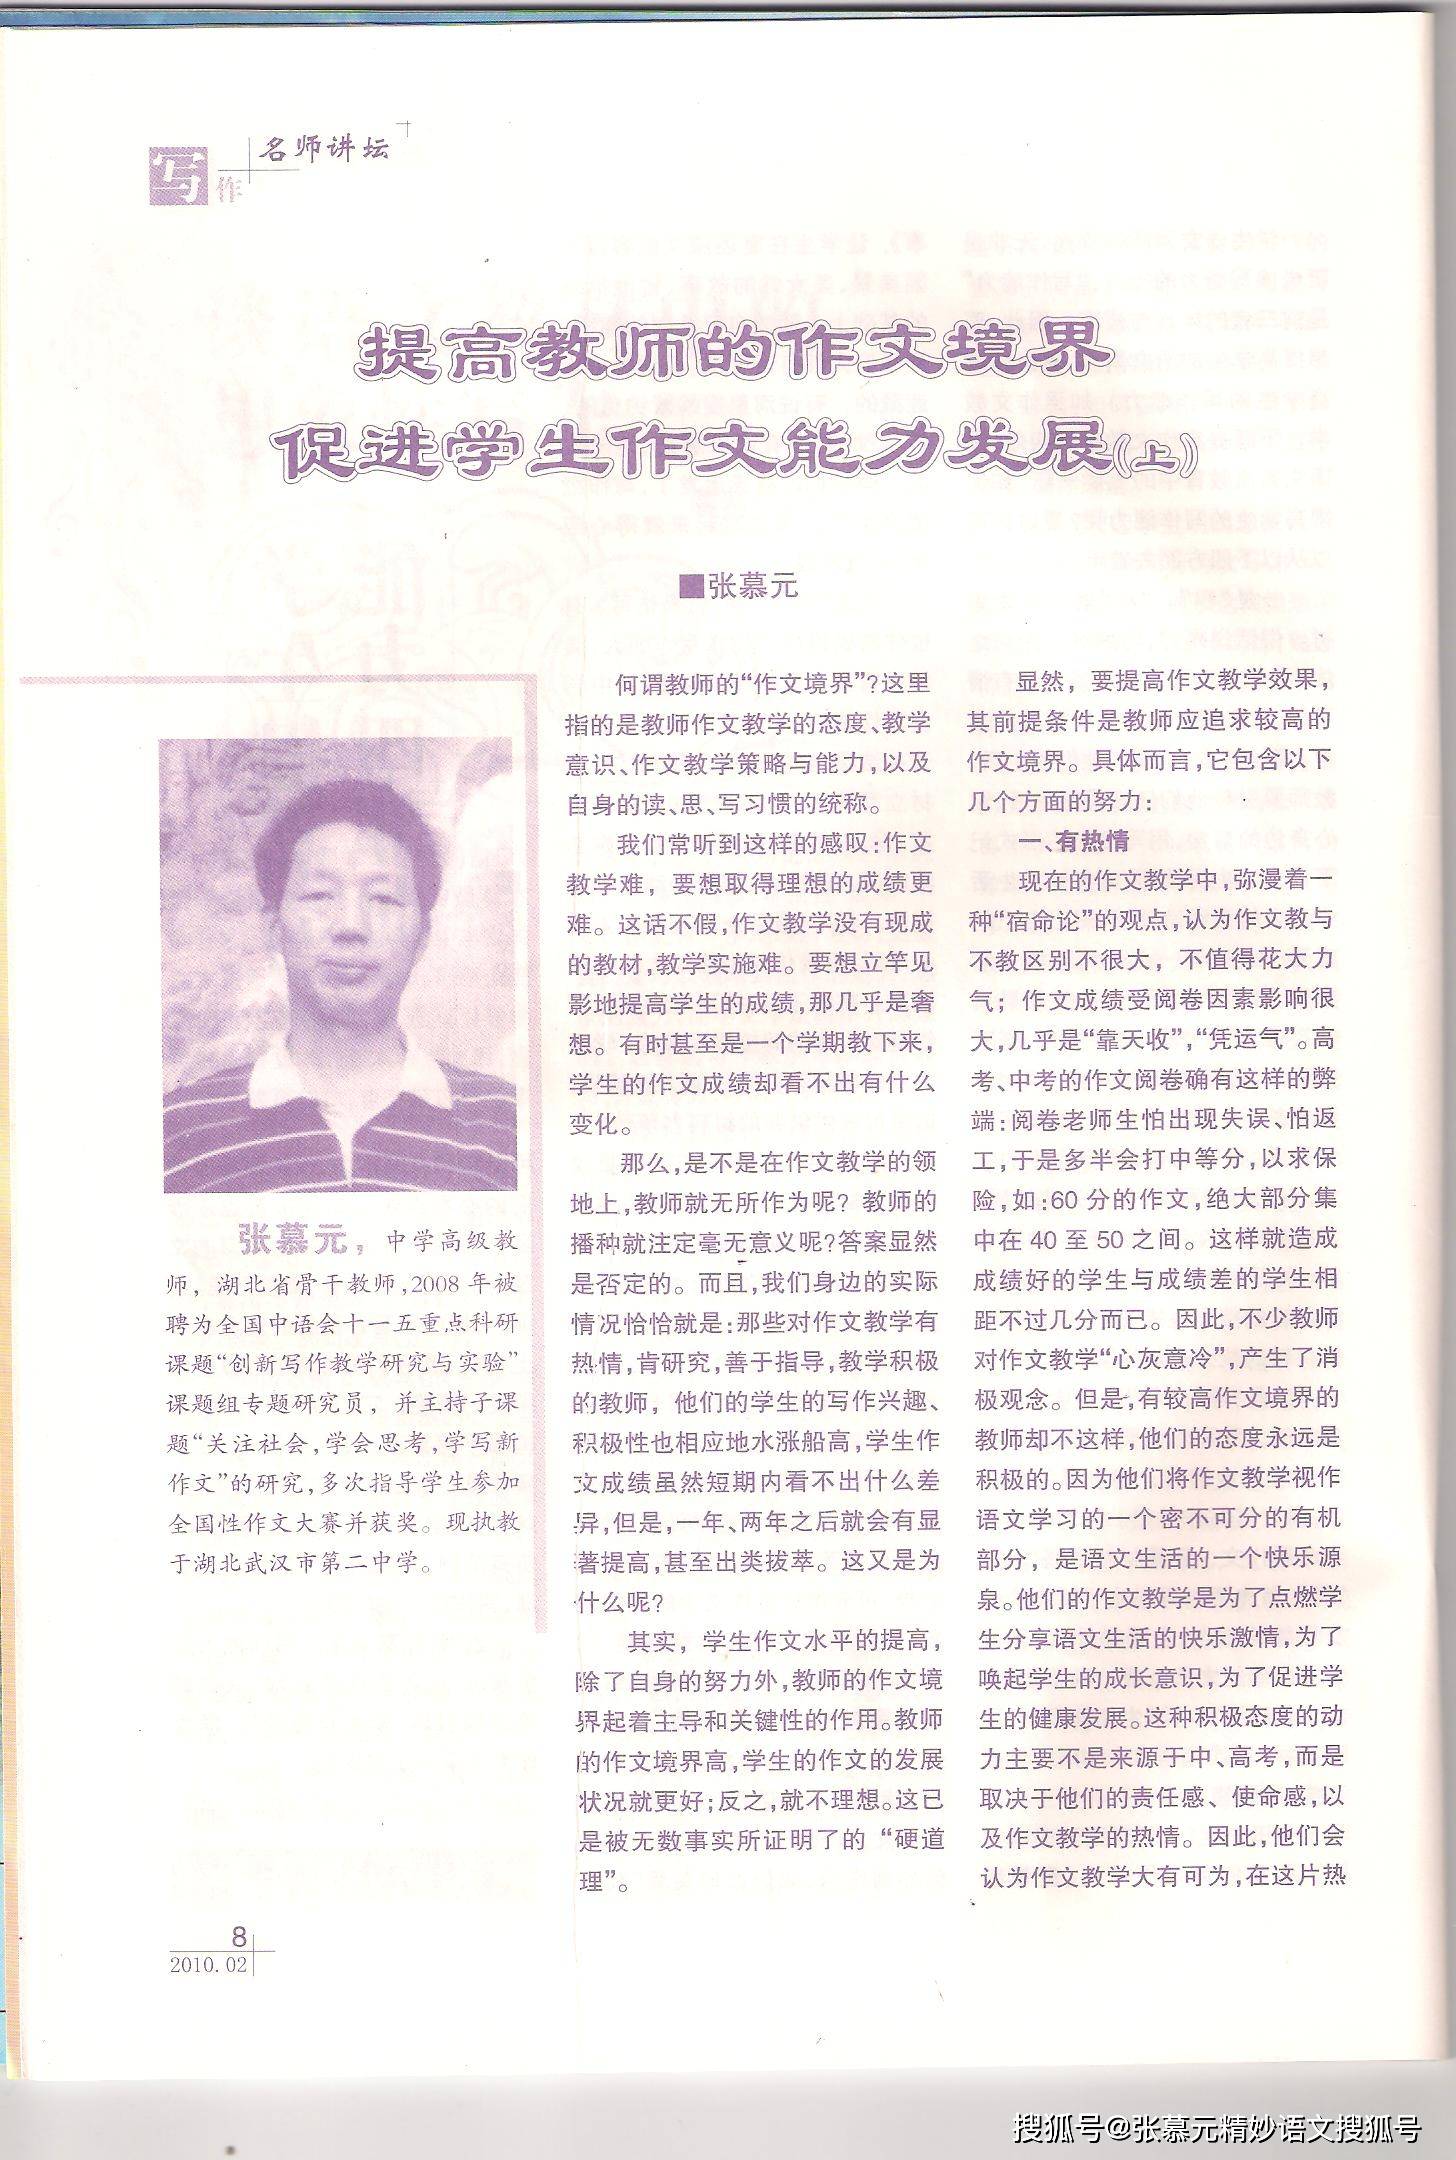 写作
名师讲坛
提高教师的作文境界
促进学生作文能力发展(上)
■张慕元
张慕元，中学高级教
师，湖北省骨干教师,2008年被
聘为全国中语会十一五重点科研
课题“创新写作教学研究与实验”
课题组专题研究员，并主持子课
题“关注社会,学会思考,学写新
作文”的研究,多次指导学生参加
全国性作文大赛并获奖。现执教
于湖北武汉市第二中学。
何谓教师的“作文境界”?这里
指的是教师作文教学的态度、教学
意识、作文教学策略与能力,以及
自身的读、思、写习惯的统称。
我们常听到这样的感叹:作文
教学难，要想取得理想的成绩更
难。这话不假,作文教学没有现成
的教材,教学实施难。要想立竿见
影地提高学生的成绩,那几乎是奢
想。有时甚至是一个学期教下来,
学生的作文成绩却看不出有什么
变化。
那么,是不是在作文教学的领
地上,教师就无所作为呢? 教师的
播种就注定毫无意义呢?答案显然
是否定的。而且,我们身边的实际
情况恰恰就是:那些对作文教学有
热情,肯研究,善于指导,教学积极
的教师，他们的学生的写作兴趣、
积极性也相应地水涨船高,学生作
文成绩虽然短期内看不出什么差
异,但是,一年、两年之后就会有显
著提高,甚至出类拔萃。这又是为
什么呢?
其实，学生作文水平的提高,
除了自身的努力外,教师的作文境
界起着主导和关键性的作用。教师
的作文境界高,学生的作文的发展
状况就更好;反之,就不理想。这已
是被无数事实所证明了的“硬道
理”。
显然，要提高作文教学效果,
其前提条件是教师应追求较高的
作文境界。具体而言,它包含以下
几个方面的努力:
一、有热情
现在的作文教学中,弥漫着一
种“宿命论”的观点,认为作文教与
不教区别不很大，不值得花大力
气；作文成绩受阅卷因素影响很
大,几乎是“靠天收”,“凭运气”。高
考、中考的作文阅卷确有这样的弊
端:阅卷老师生怕出现失误、怕返
工,于是多半会打中等分,以求保
险,如:60分的作文,绝大部分集
中在40至50之间。这样就造成
成绩好的学生与成绩差的学生相
距不过几分而已。因此,不少教师
对作文教学“心灰意冷”,产生了消
极观念。但是,有较高作文境界的
教师却不这样,他们的态度永远是
积极的。因为他们将作文教学视作
语文学习的一个密不可分的有机
部分，是语文生活的一个快乐源
泉。他们的作文教学是为了点燃学
生分享语文生活的快乐激情,为了
唤起学生的成长意识,为了促进学
生的健康发展。这种积极态度的动
力主要不是来源于中、高考,而是
取决于他们的责任感、使命感,以
及作文教学的热情。因此,他们会
认为作文教学大有可为,在这片热
8
2010.02
搜狐号@张慕元精妙语文搜狐号